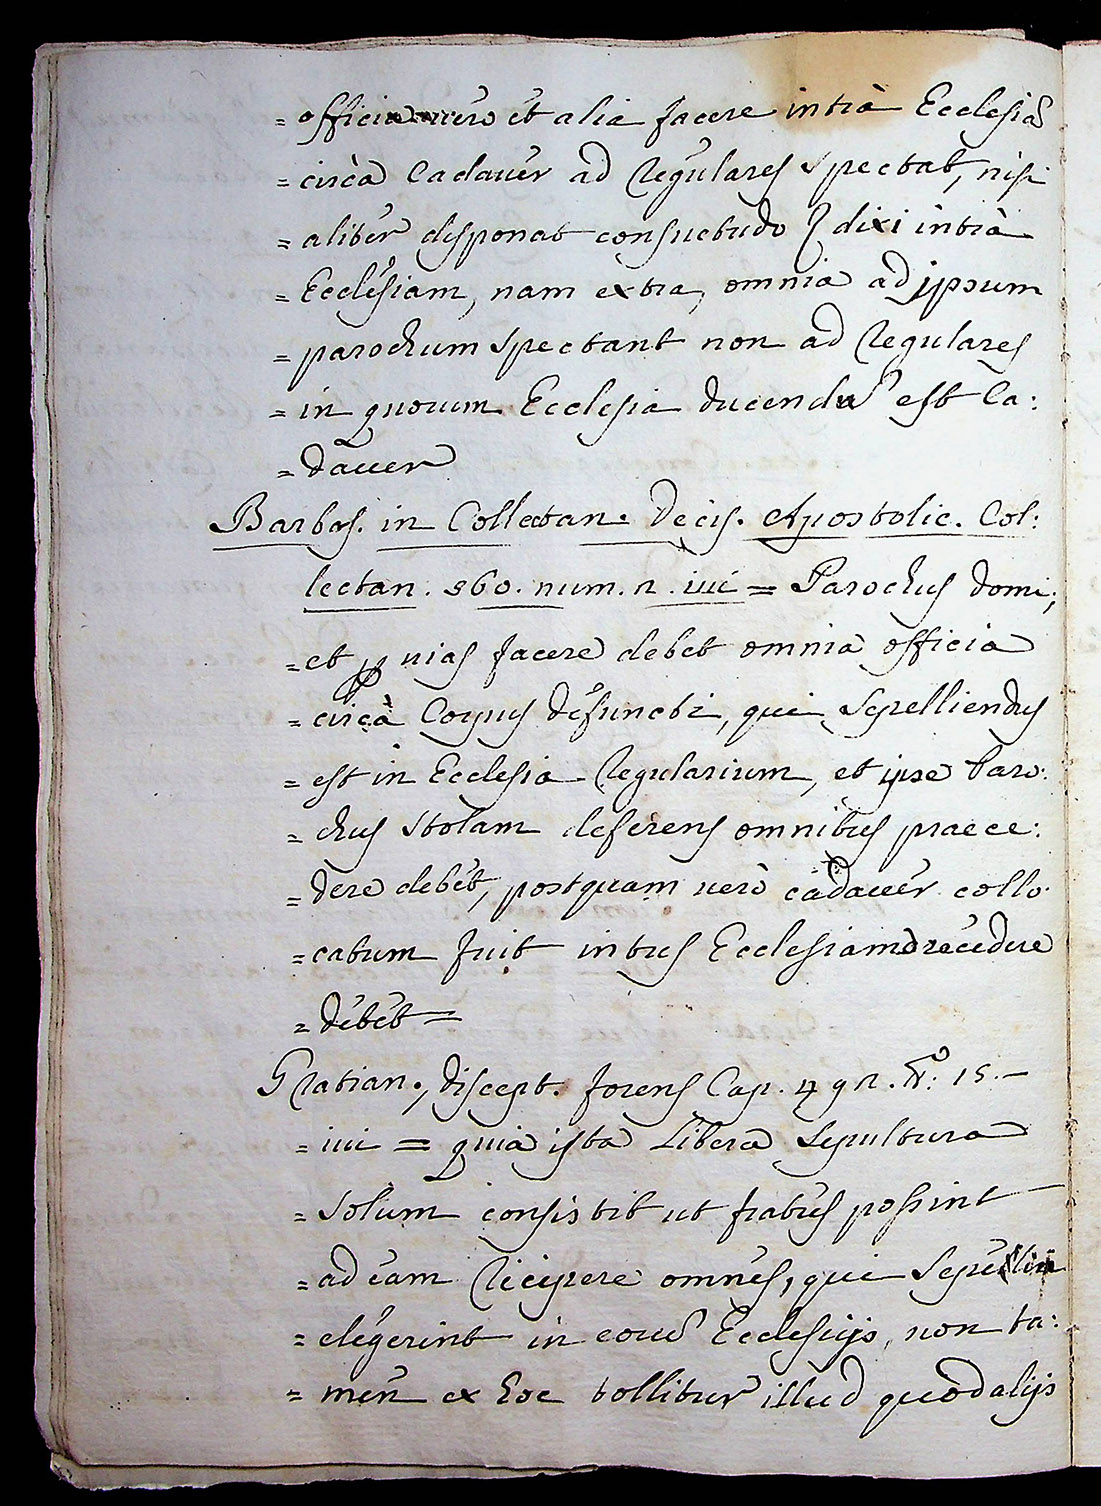 = officia verò et alia facere intrà Ecclesiã
= circà Cadauer ad Regulares spectat, nisi
= aliter disponat consuetudo dixi intrà
= Ecclesiam, nam extra, omnia ad ipsum
= parochum spectant non ad Regulares
= in quorum Ecclesia ducendũ est Ca:
= dauer
Barbos. in Collectan. Decis. Apostolic. Col:
lectan. 560. num. 2. iui = Parochus domi,
= et p uias facere debet omnia officia
= circà Corpus defuncti, qui sepelliendus
= est in Ecclesia Regularium, et ipse Paro:
= chus stolam deferens omnibus praece:
= dere debet, postquam uerò cadauer collo:
= catum fuit intus Ecclesiam recedere
= debet =
Gratian., discept. forens Cap. 492. N.º: 15. –
= iui = quia ista Libera Sepultura
= solum consistit ut fratres possint
= ad eam recipere omnes, qui Sepeliri
= elegerint in eorũ Ecclesijs, non ta:
= men ex hoc tollitur illud quod alijs